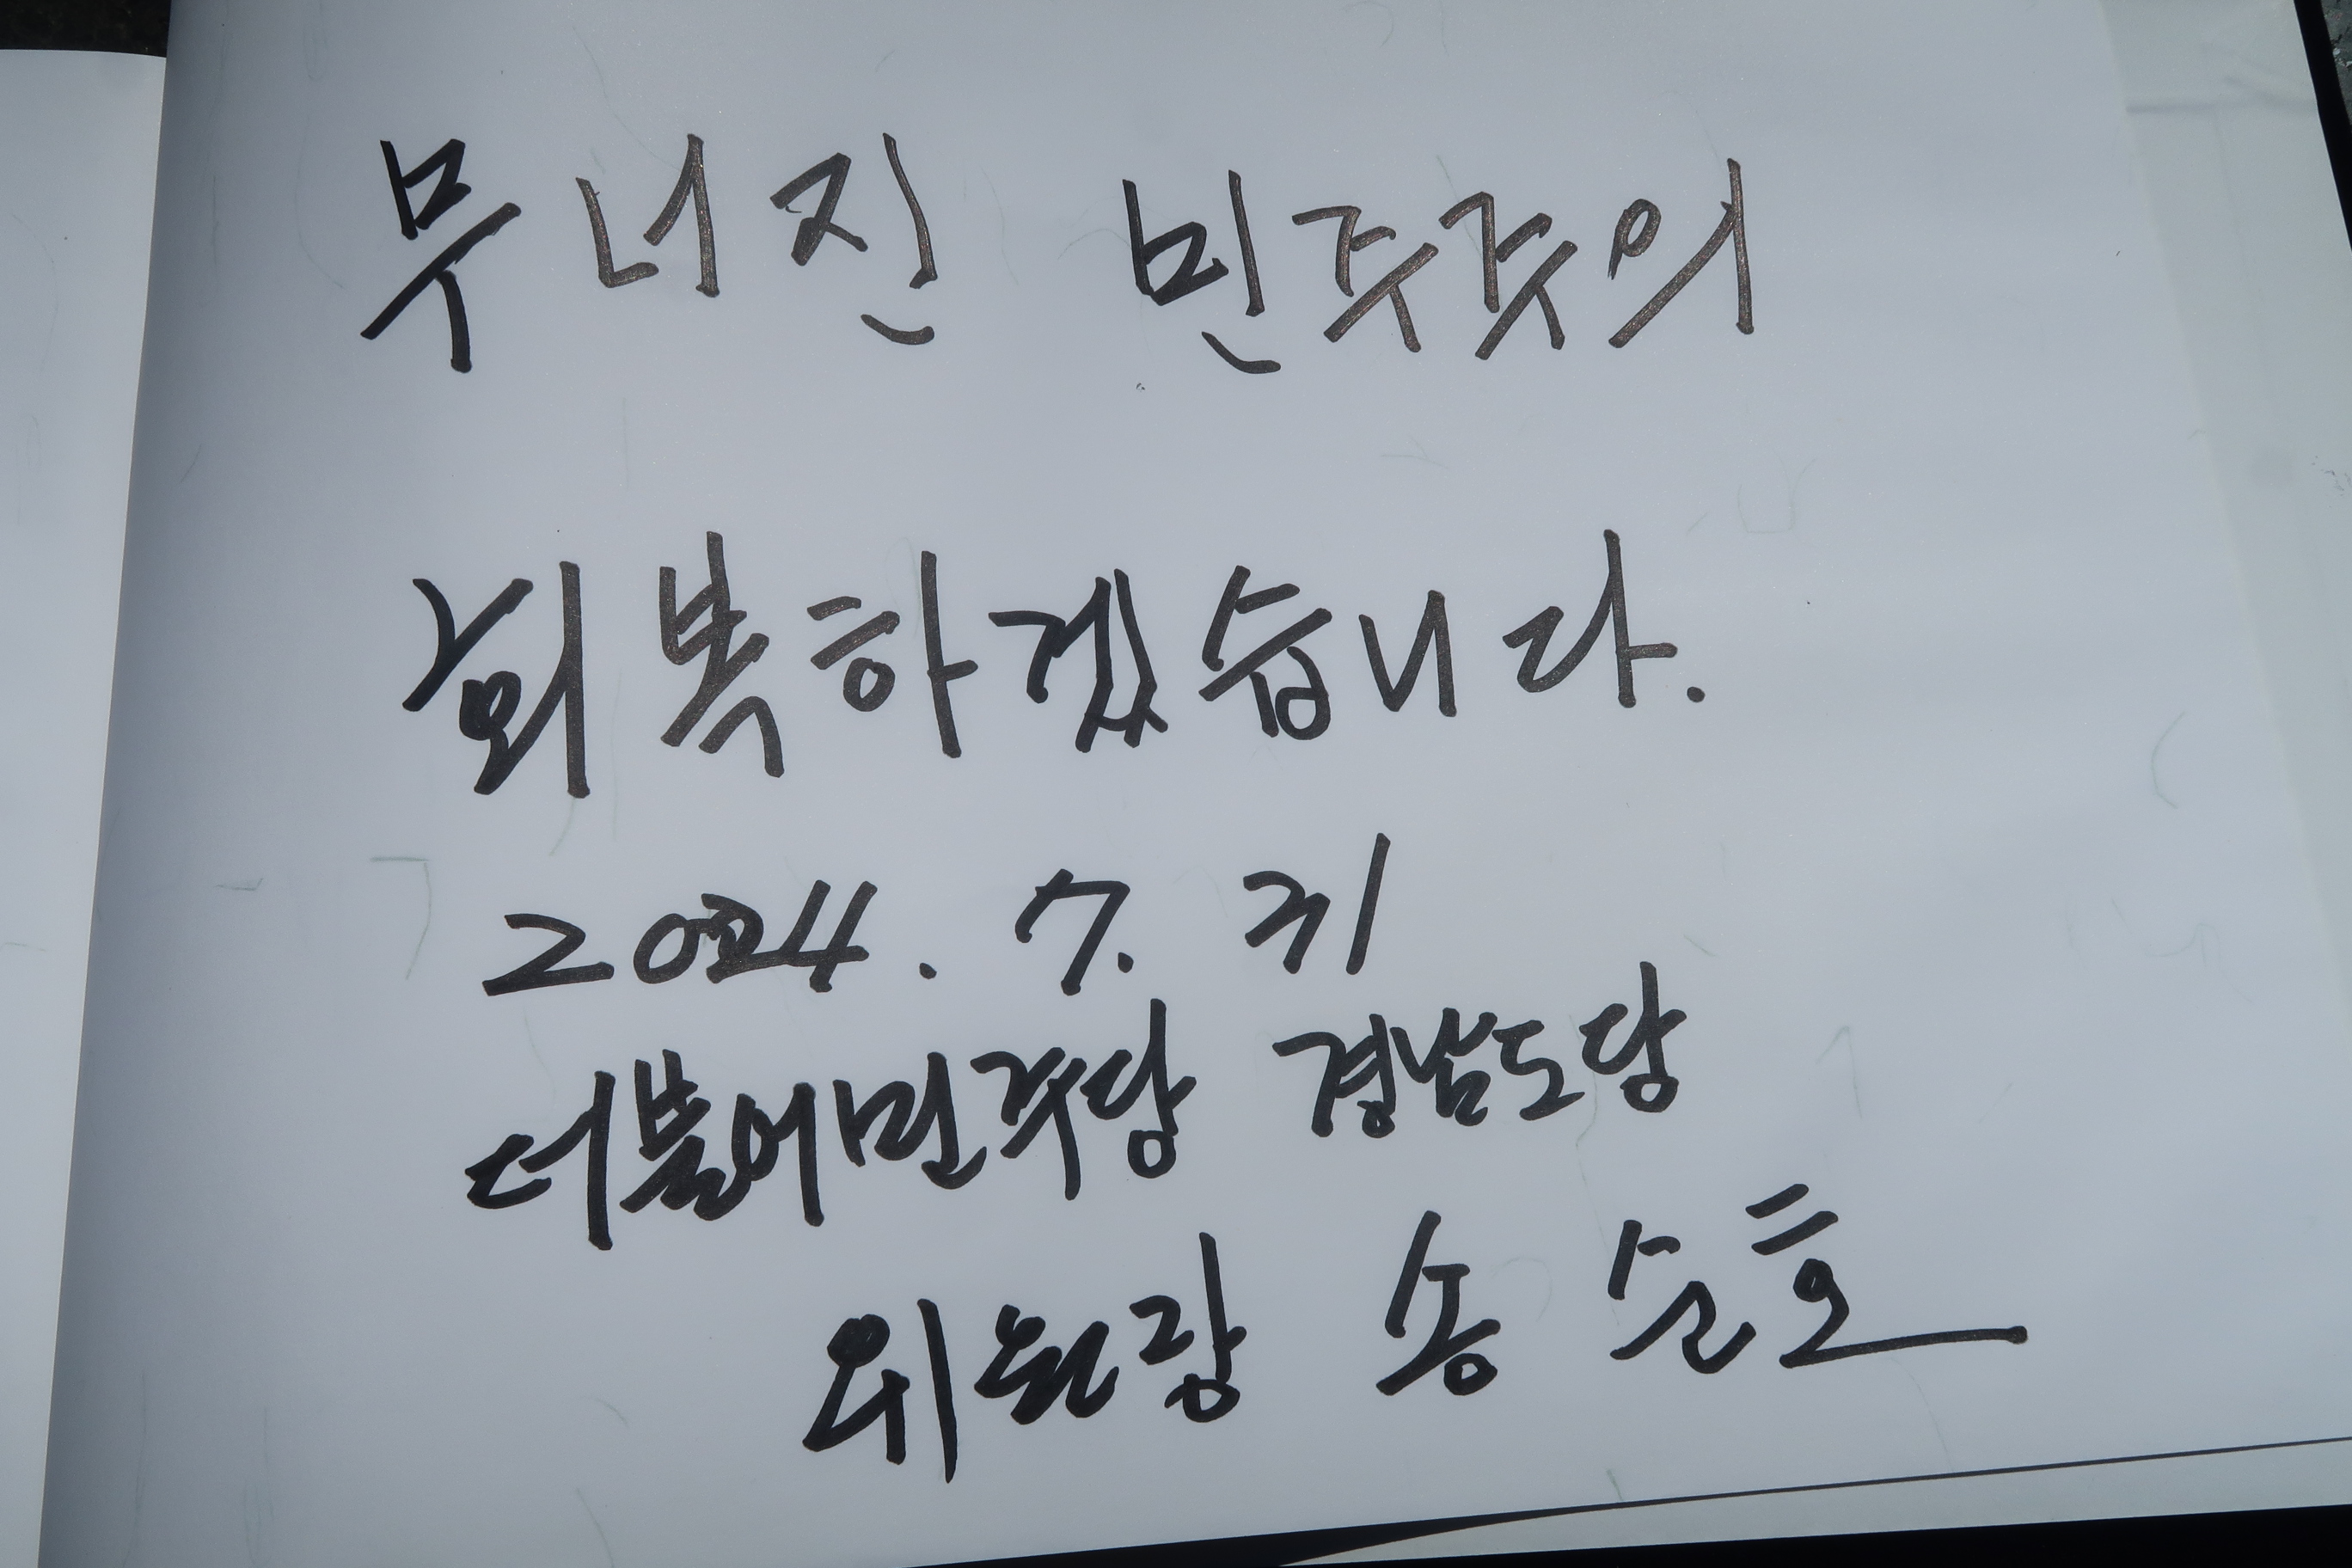 무너진 민주주의
회복하겠습니다.
2024. 7. 31
더불어민주당 경남도당
위원장 송순호